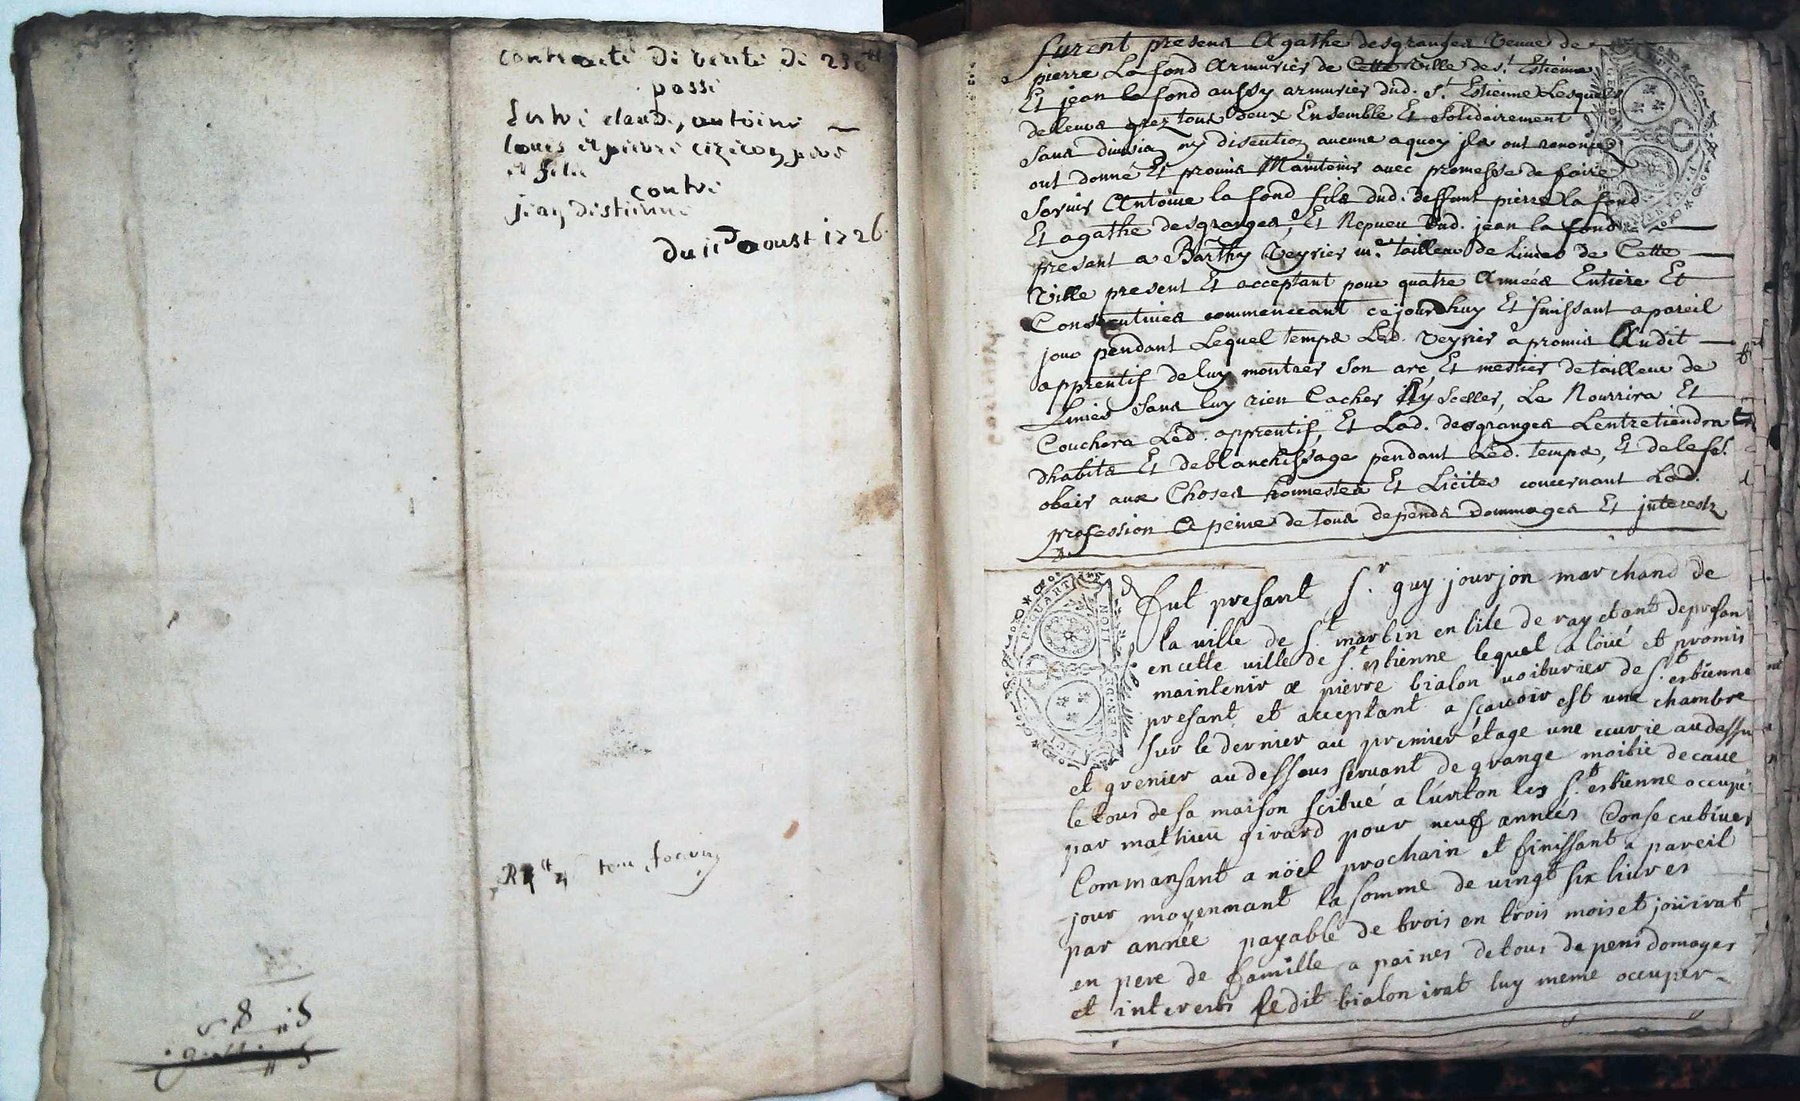 contracte di vente di 230ᵗᵗ
passi
Entre claude, antoine
louis et pierre cizeron pere
et fils
contre
jean distienne
du 11ᵉ aoust 1726
Furent presens Agathe desgranges veuve de
pierre La fond Armurier de Cette Ville de sᵗ Estienne
Et jean la fond aussy armurier dud. sᵗ Estienne Lesquels
de leurs grez tous deux Ensemble Et Solidairement
Sans division ny disention aucune a quoy jls ont renoncé
ont donné Et promis Maintenir avec promesse de faire
Servir Antoine la fond fils dud. deffunt pierre la fond
Et agathe desgranges, Et Nepveu Dud. jean la fond
present a Barthy Veyrier mᵉ tailleur de Limes de Cette
Ville present Et acceptant pour quatre Années Entiere Et
Consecutives commenceant cejourdhuy Et finissant a pareil
jour pendant Lequel temps Led. Veyrier a promis Audit
apprentif de luy montrer Son art Et mestier de tailleur de
Limes Sans luy rien Cacher Ny Sceller, Le Nourrira Et
Couchera Led. apprentif, Et Lad. desgranges Lentretiendra
dhabits Et deblanchissage pendant Led. temps, Et de le fᵉ
obeir aux Choses honnestes Et Licites concernant Lad.
profession A peine de tous depends Dommages Et jnterests
Fut presant sʳ guy jourjon marchand de
la ville de sᵗ martin en lile de ray etant depresan
en cette ville de sᵗ estienne lequel a loüé et promis
maintenir a pierre bialon voiturier de sᵗ estienne
presant et acceptant a sçavoir est une chambre
sur le dernier au premier étage une ecurie audessu
et grenier au dessous servant de grange moitié decave
le tous de sa maison scitué a lurton les sᵗ estienne occupé
par mathieu girard pour neuf années Consecutives
Commansant a nöel prochain et finissant a pareil
jour moyennant la somme de vingt six livres
par année payable de trois en trois mois et joüirat
en pere de famille a paines detous depens domages
et interests ledit bialon irat luy meme occuper